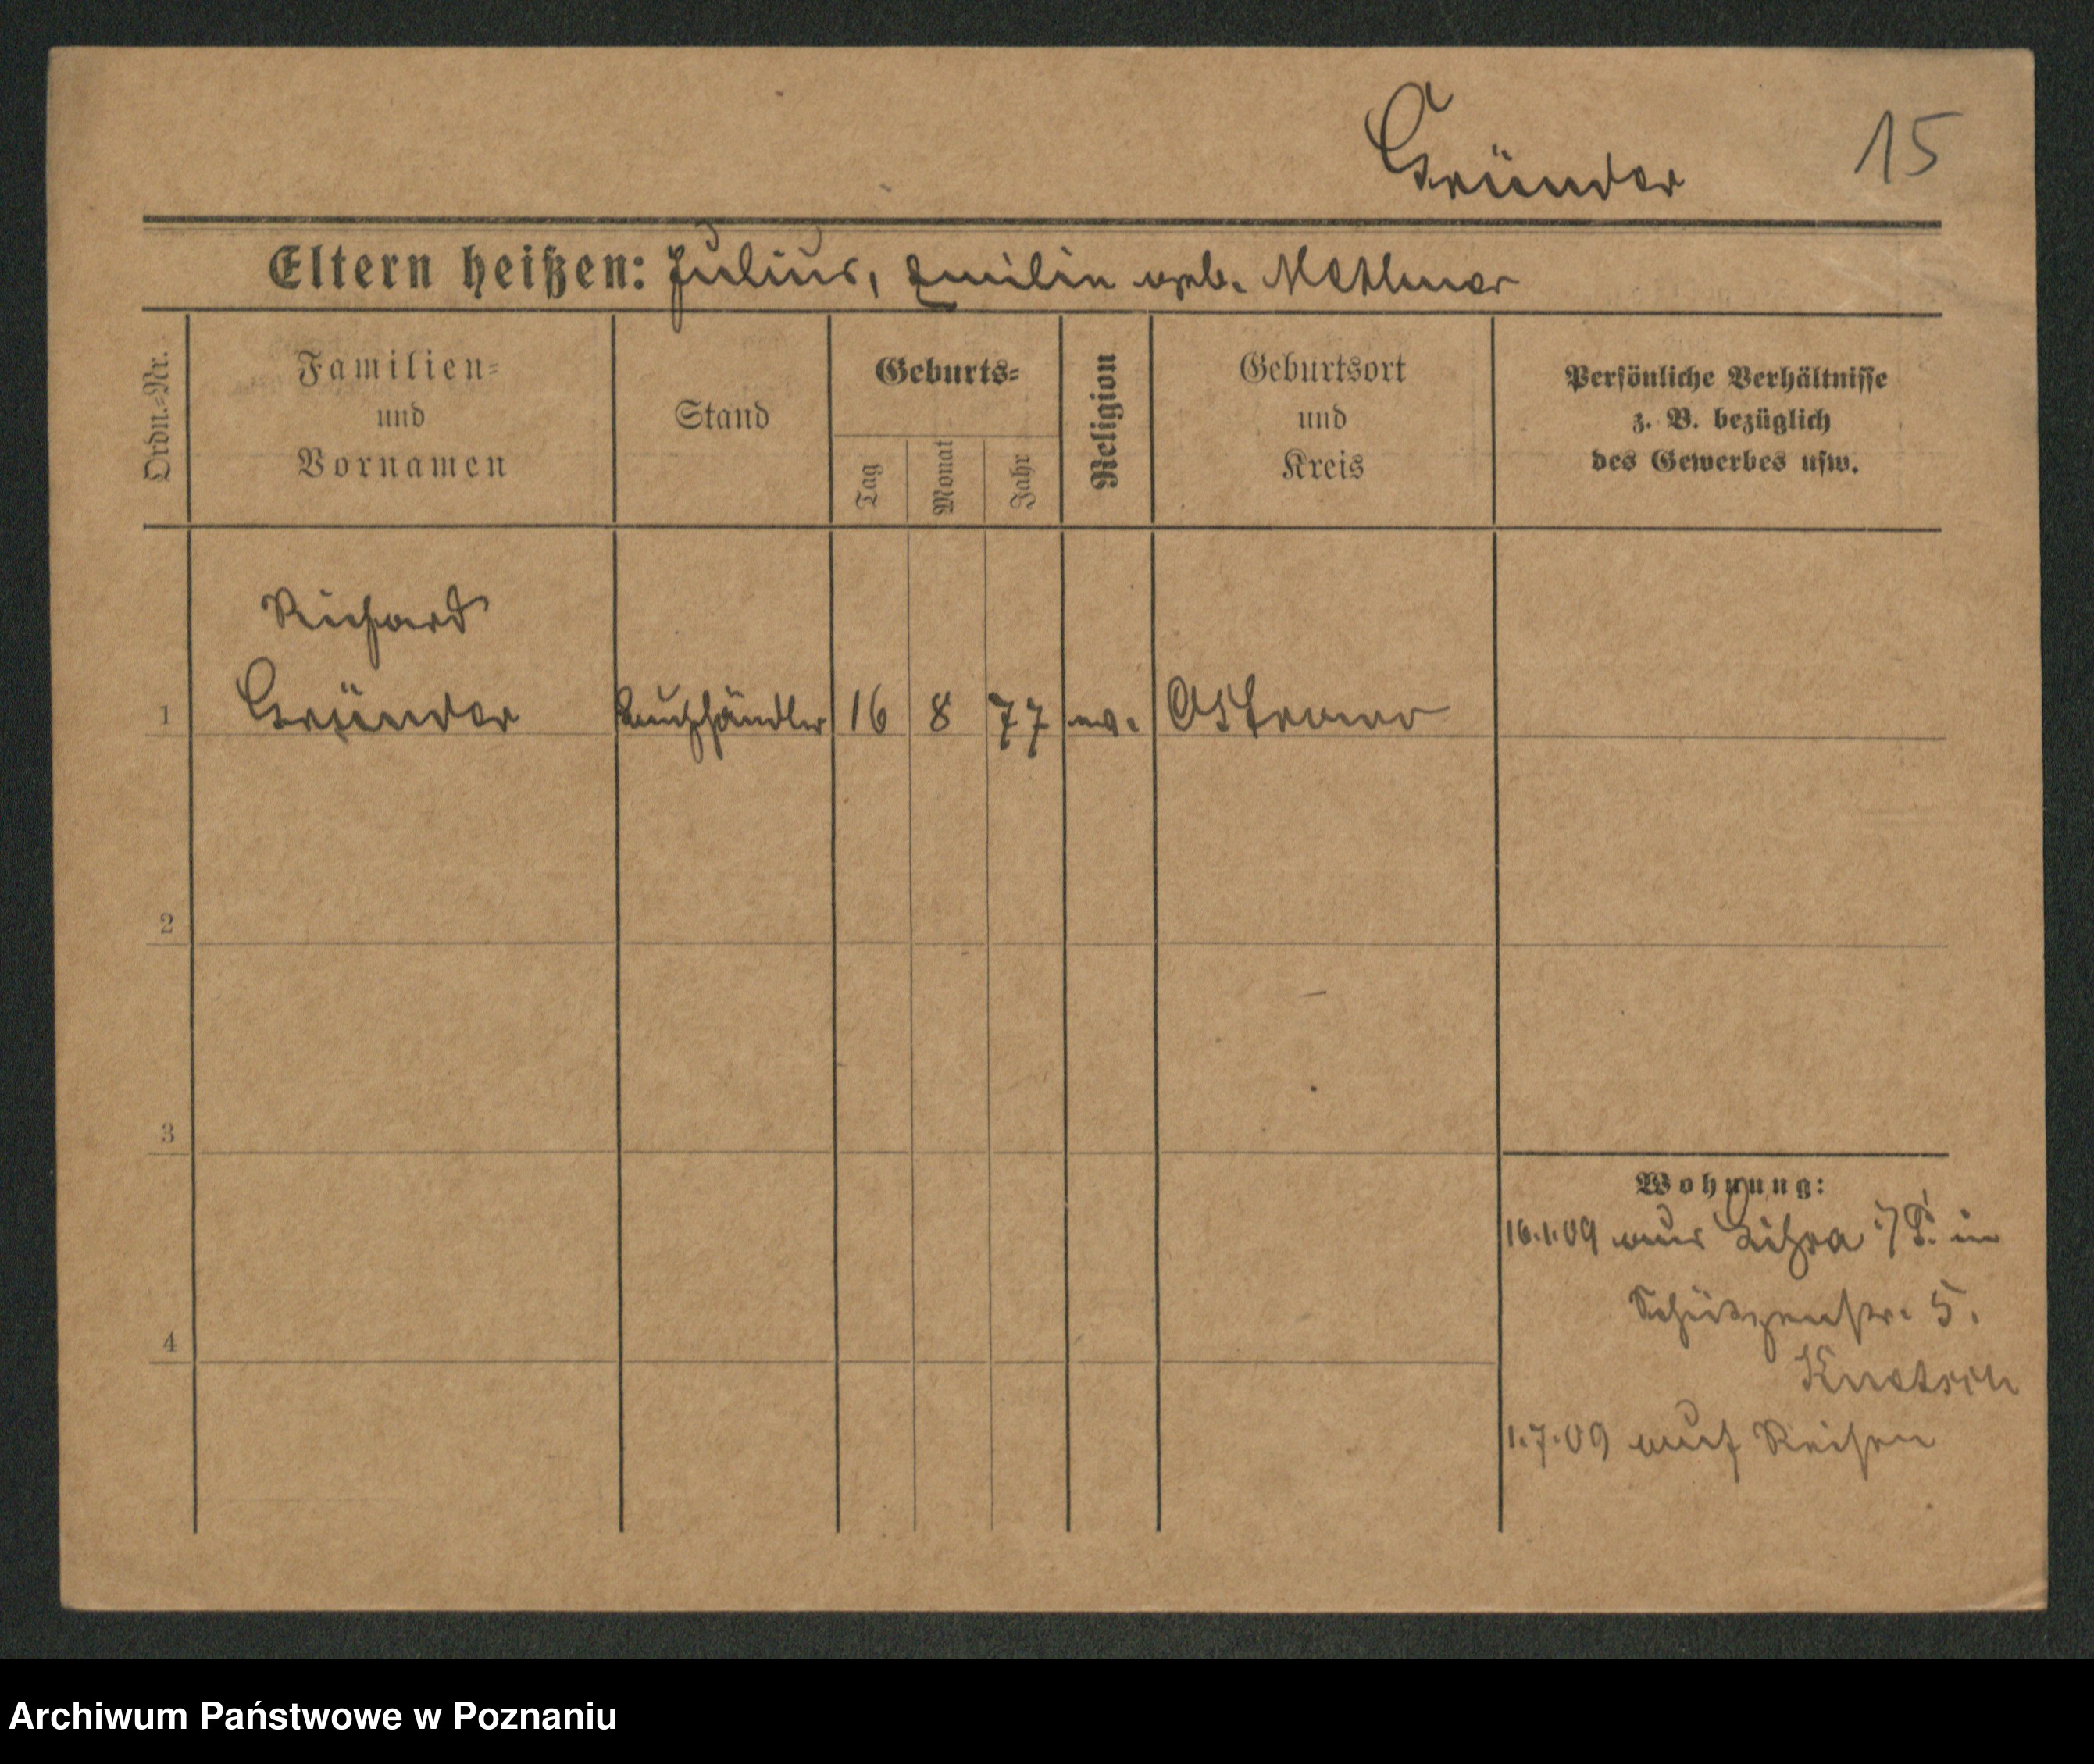 Gründer 15
Eltern heißen: Julius, Emilie geb.
Ordn.=Nr.
Familien=
und
Vornamen
Stand
Geburts=
Tag
Monat
Jahr
Religion
Geburtsort
und
Kreis
Persönliche Verhältnisse
z. B. bezüglich
des Gewerbes usw.
Richard
1 Gründer 16 8 77 ev. Ostrowo
2
3
4
Wohnung:
16.1.09 aus Lissa i/P. in
Schützenstr. 5.
1.7.09 auf Reisen
Archiwum Państwowe w Poznaniu